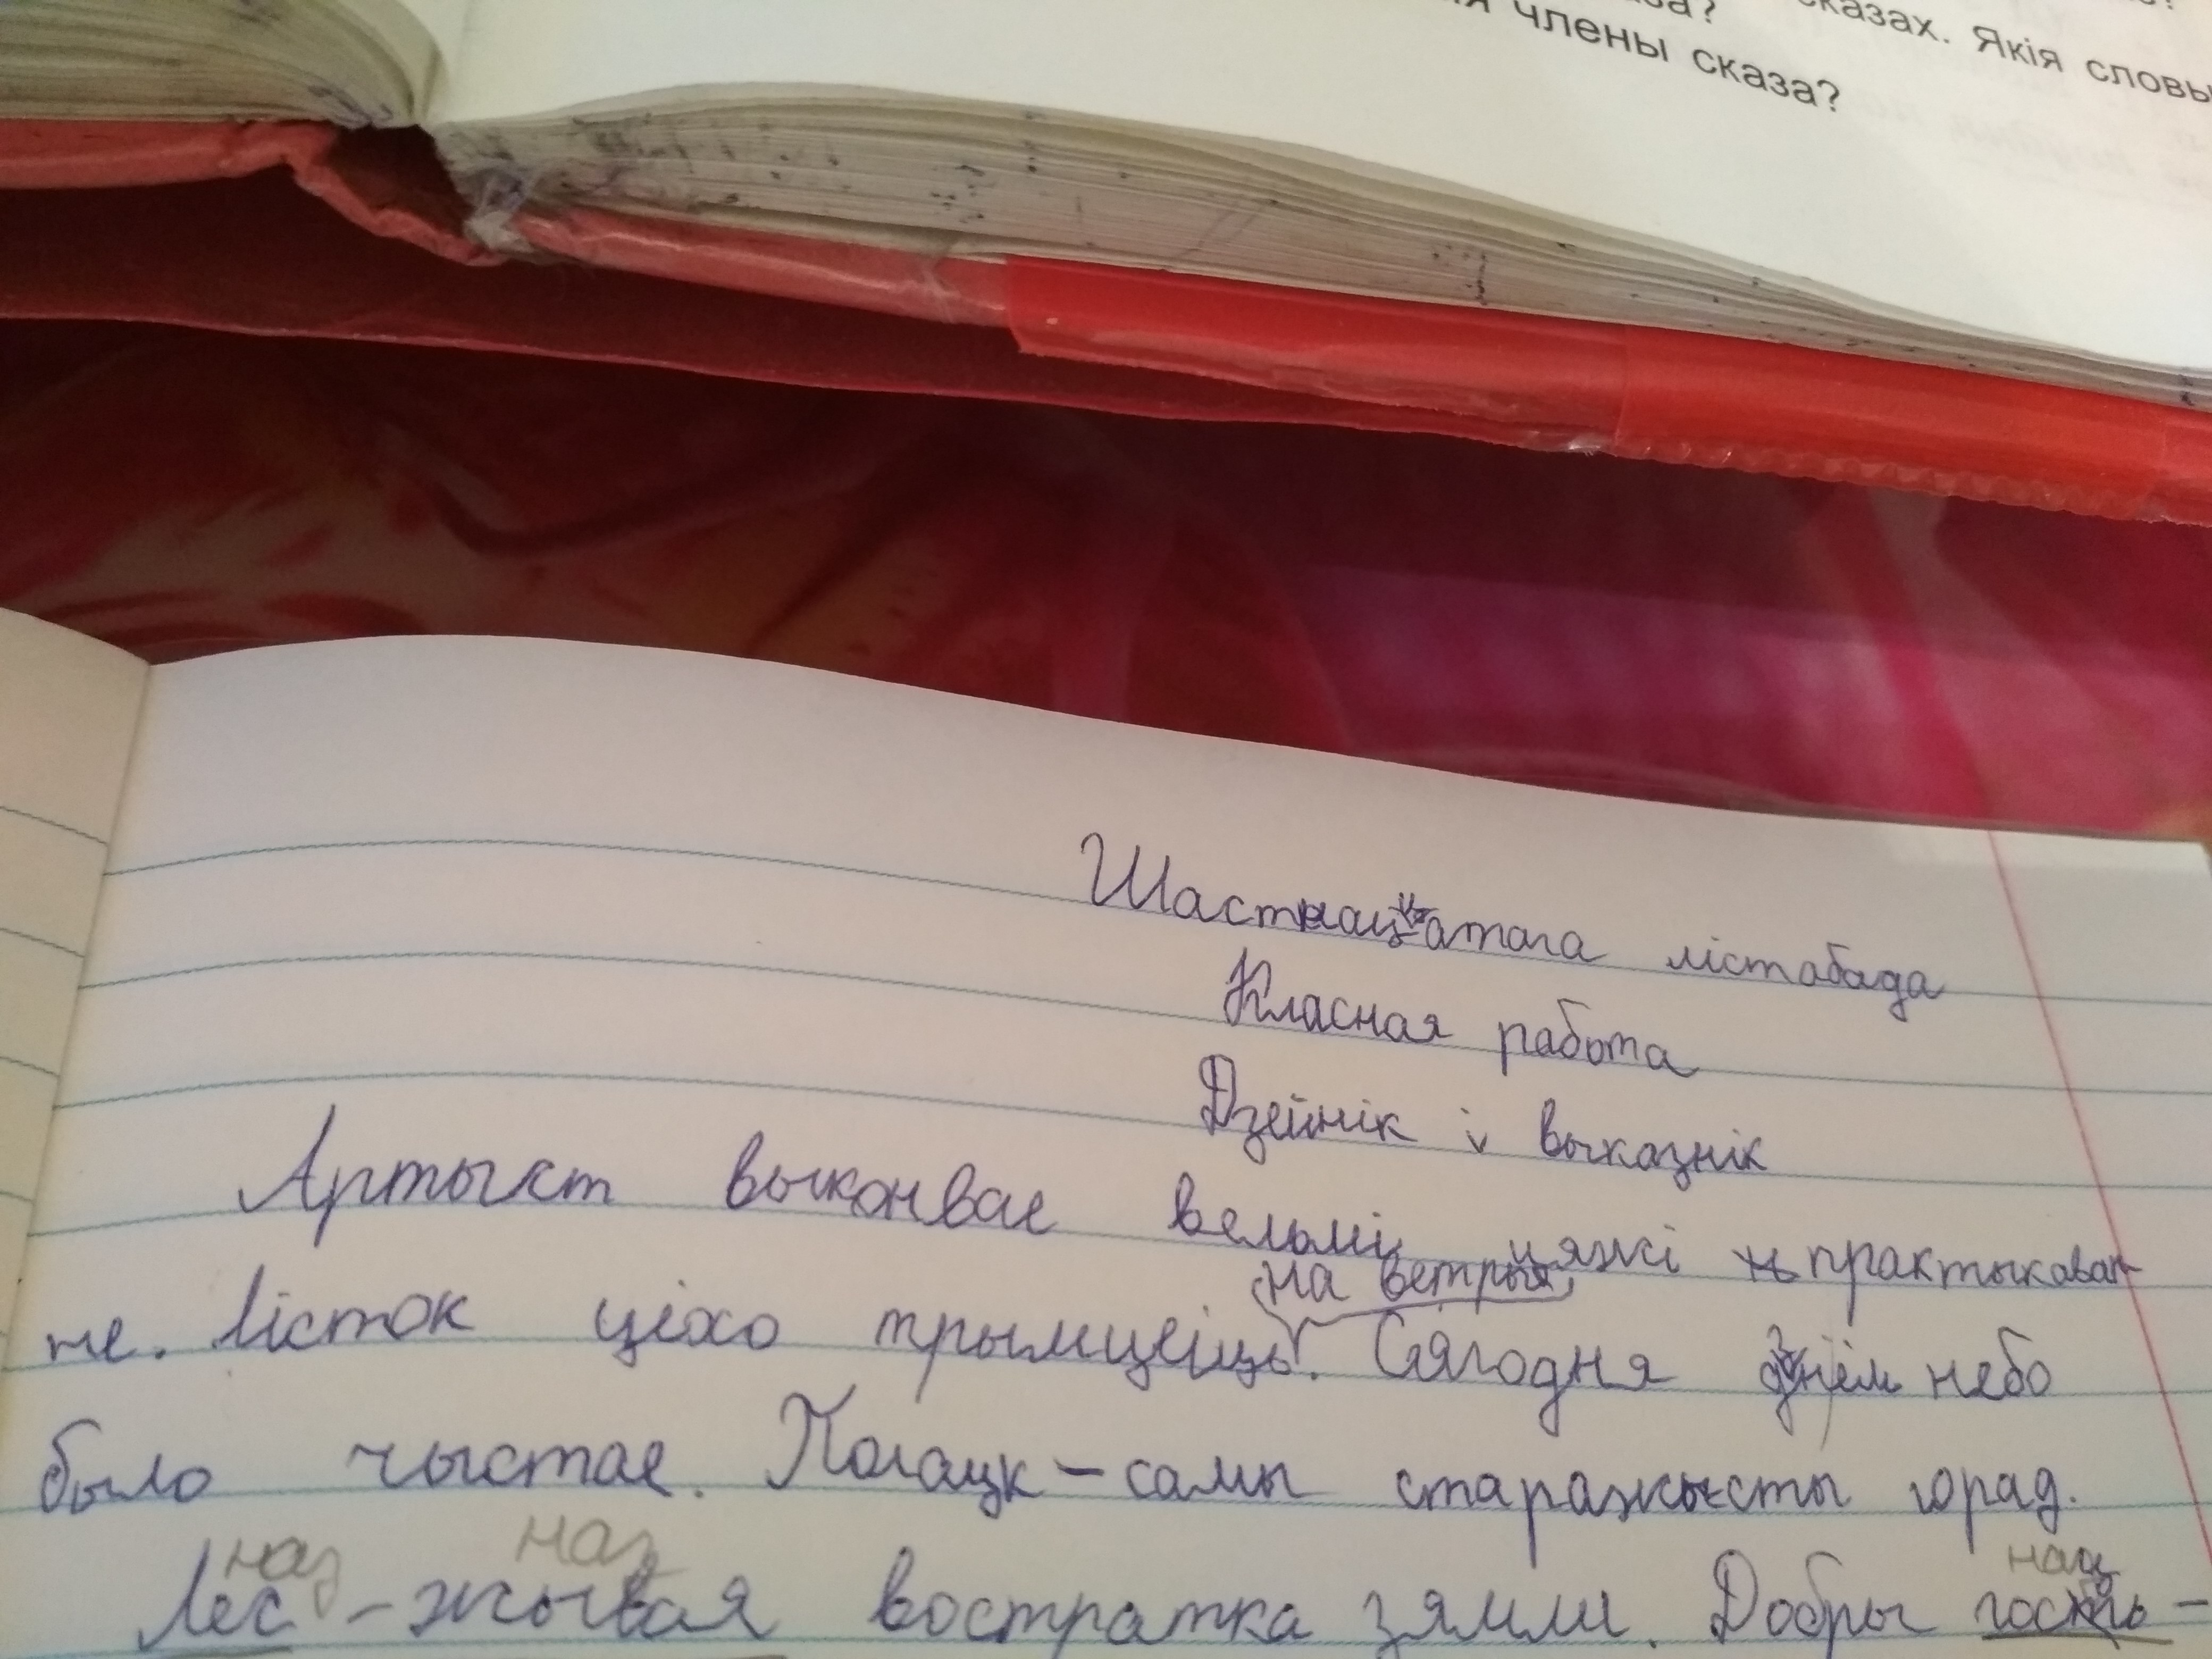 сказах. Якія словы
члены сказа?
Шастнацатага лістабада
Класная работа
Дзейнік і выказнік
Артыст выконвае вельмі цяжкі практыкаван
не. Лісток ціхо трымціць на ветры. Сягодня днём небо
было чыстае. Полацк – самы старажысты горад.
наз наз наз
Лес – жывая востратка зямли. Добры госць –